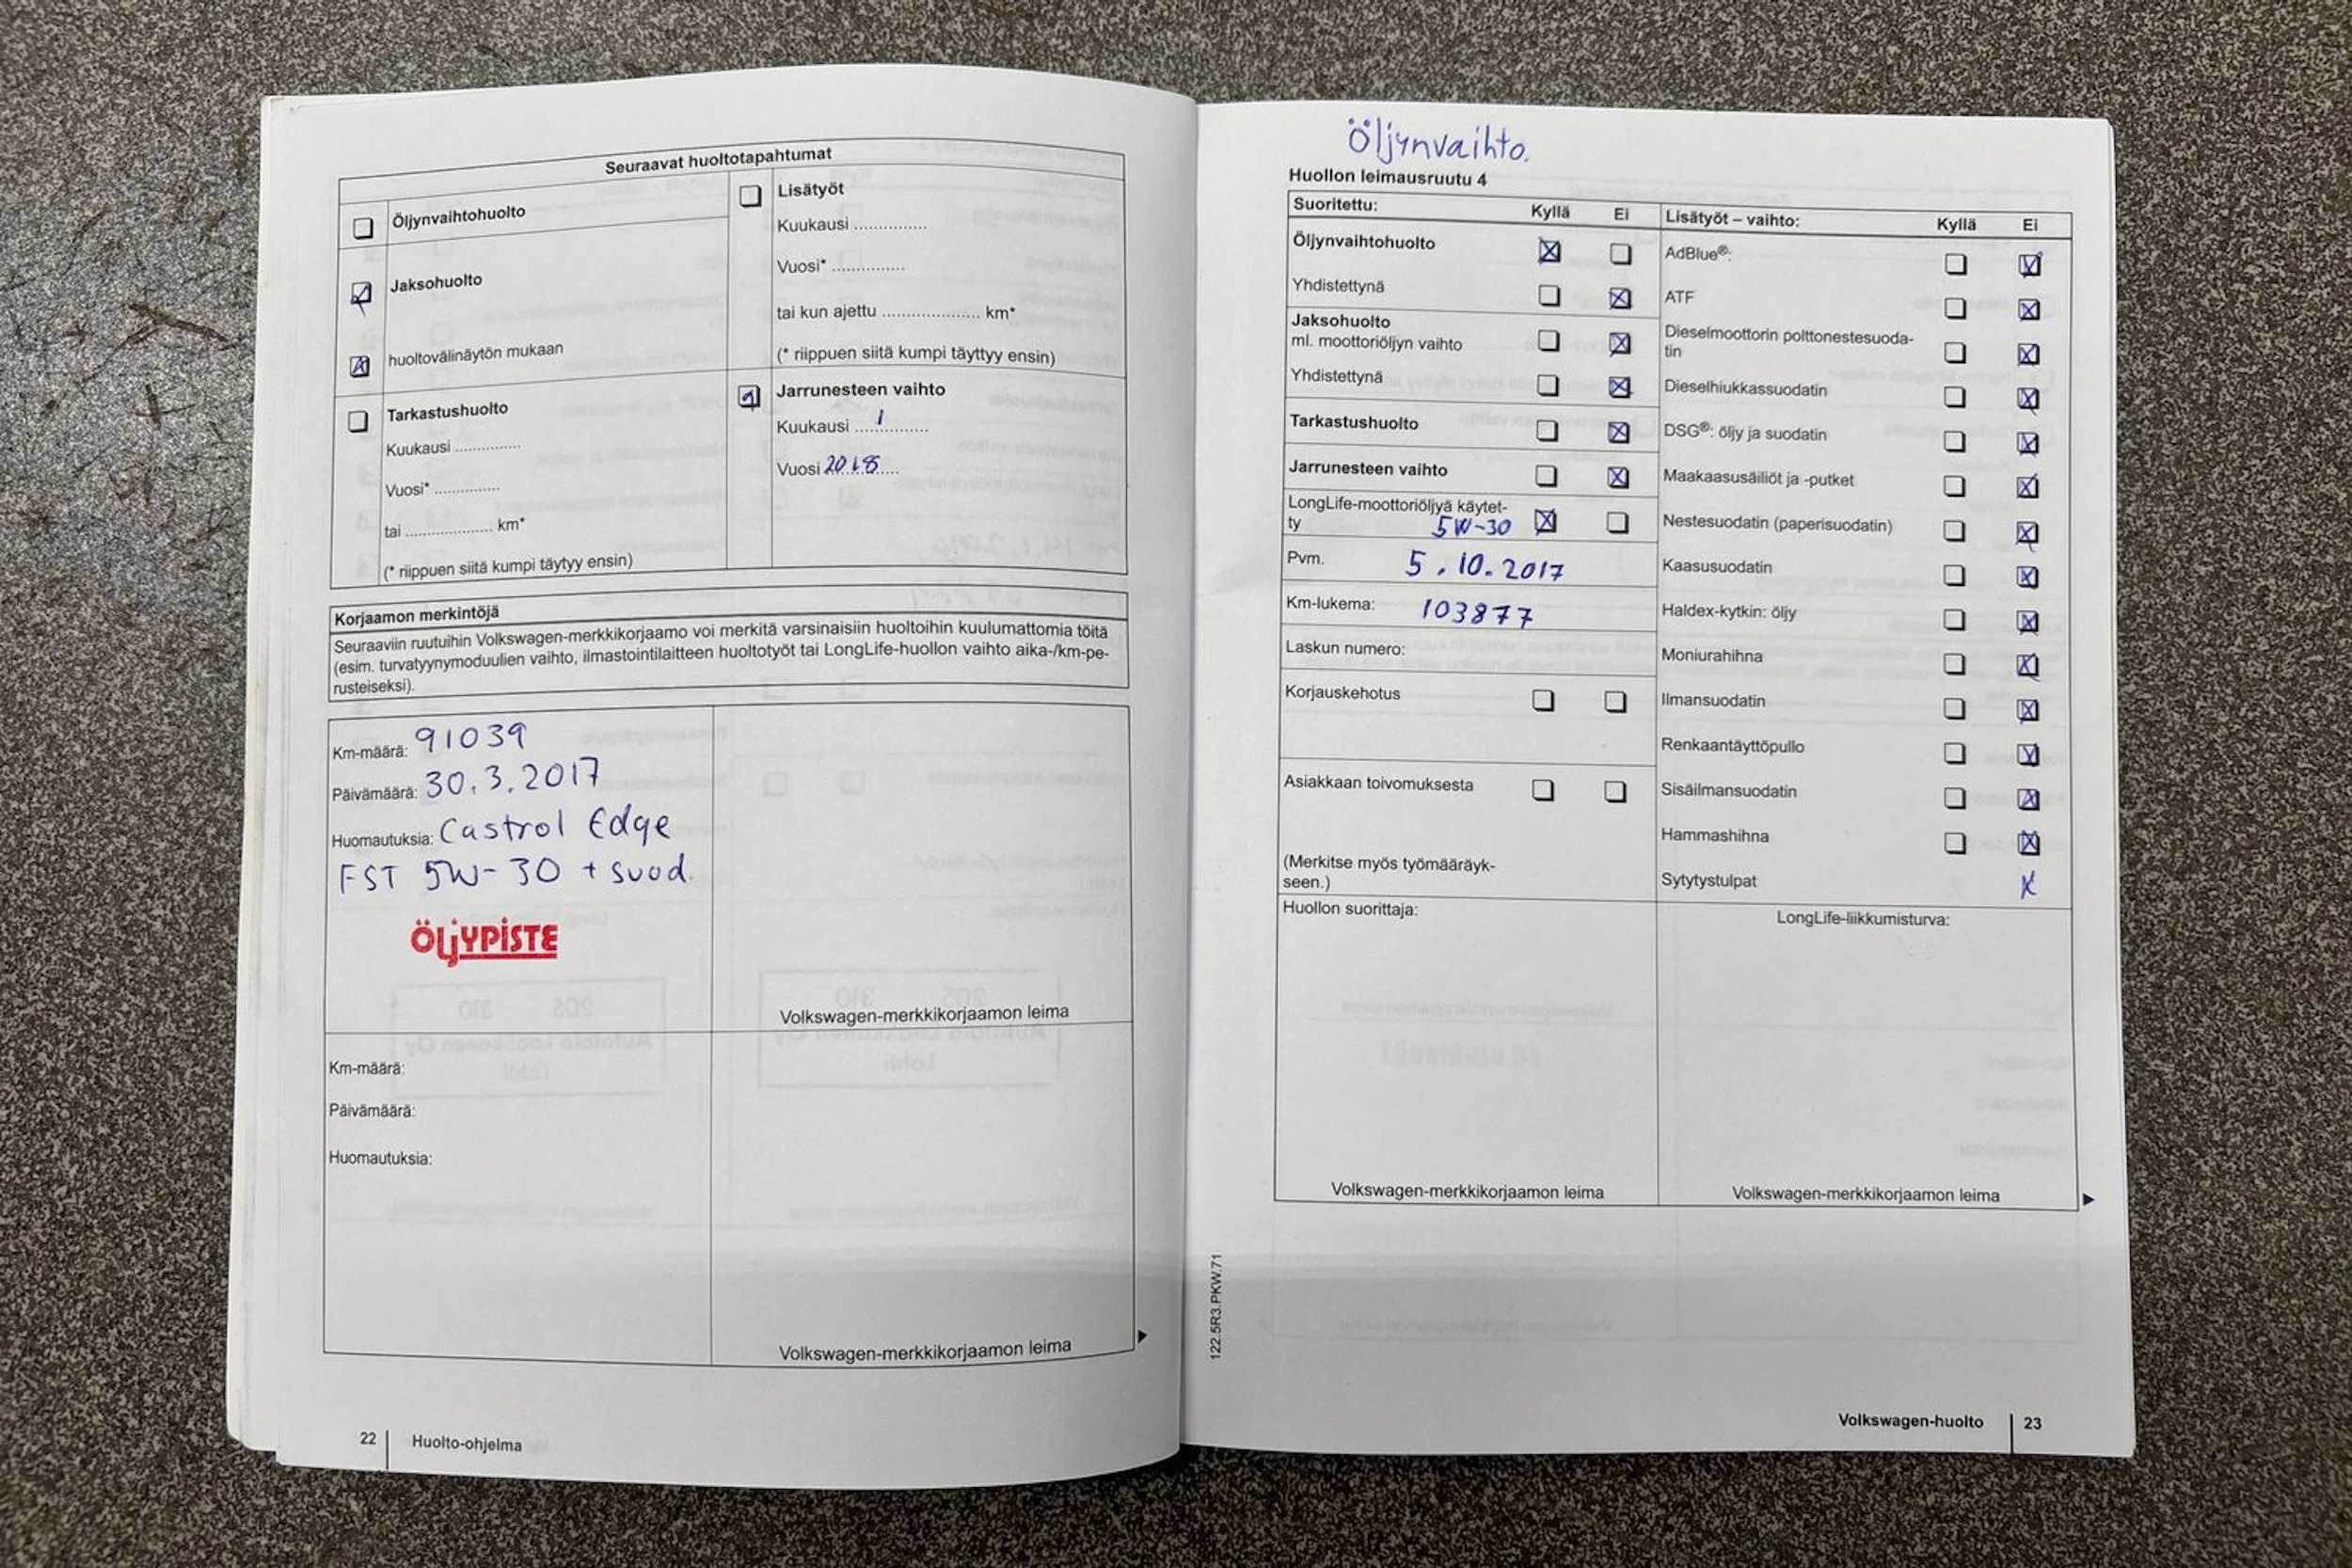 Seuraavat huoltotapahtumat
Öljynvaihtohuolto
Jaksohuolto
huoltovälinäytön mukaan
Tarkastushuolto
Kuukausi ..............
Vuosi* ..............
tai .................. km*
(* riippuen siitä kumpi täytyy ensin)
Lisätyöt
Kuukausi ...............
Vuosi* ...............
tai kun ajettu .................... km*
(* riippuen siitä kumpi täyttyy ensin)
Jarrunesteen vaihto
Kuukausi 1
Vuosi 2018
Korjaamon merkintöjä
Seuraaviin ruutuihin Volkswagen-merkkikorjaamo voi merkitä varsinaisiin huoltoihin kuulumattomia töitä
(esim. turvatyynymoduulien vaihto, ilmastointilaitteen huoltotyöt tai LongLife-huollon vaihto aika-/km-pe-
rusteiseksi).
Km-määrä: 91039
Päivämäärä: 30.3.2017
Huomautuksia: Castrol Edge
FST 5W-30 + suod.
ÖLJYPISTE
Volkswagen-merkkikorjaamon leima
Km-määrä:
Päivämäärä:
Huomautuksia:
Volkswagen-merkkikorjaamon leima
22 Huolto-ohjelma
Öljynvaihto.
Huollon leimausruutu 4
Suoritettu: Kyllä Ei
Öljynvaihtohuolto
Yhdistettynä
Jaksohuolto
ml. moottoriöljyn vaihto
Yhdistettynä
Tarkastushuolto
Jarrunesteen vaihto
LongLife-moottoriöljyä käytet-
ty 5W-30
Pvm. 5.10.2017
Km-lukema: 103877
Laskun numero:
Korjauskehotus
Asiakkaan toivomuksesta
(Merkitse myös työmääräyk-
seen.)
Huollon suorittaja:
Volkswagen-merkkikorjaamon leima
Lisätyöt – vaihto: Kyllä Ei
AdBlue®:
ATF
Dieselmoottorin polttonestesuoda-
tin
Dieselhiukkassuodatin
DSG®: öljy ja suodatin
Maakaasusäiliöt ja -putket
Nestesuodatin (paperisuodatin)
Kaasusuodatin
Haldex-kytkin: öljy
Moniurahihna
Ilmansuodatin
Renkaantäyttöpullo
Sisäilmansuodatin
Hammashihna
Sytytystulpat X
LongLife-liikkumisturva:
Volkswagen-merkkikorjaamon leima
122.5R3.PKW.71
Volkswagen-huolto 23